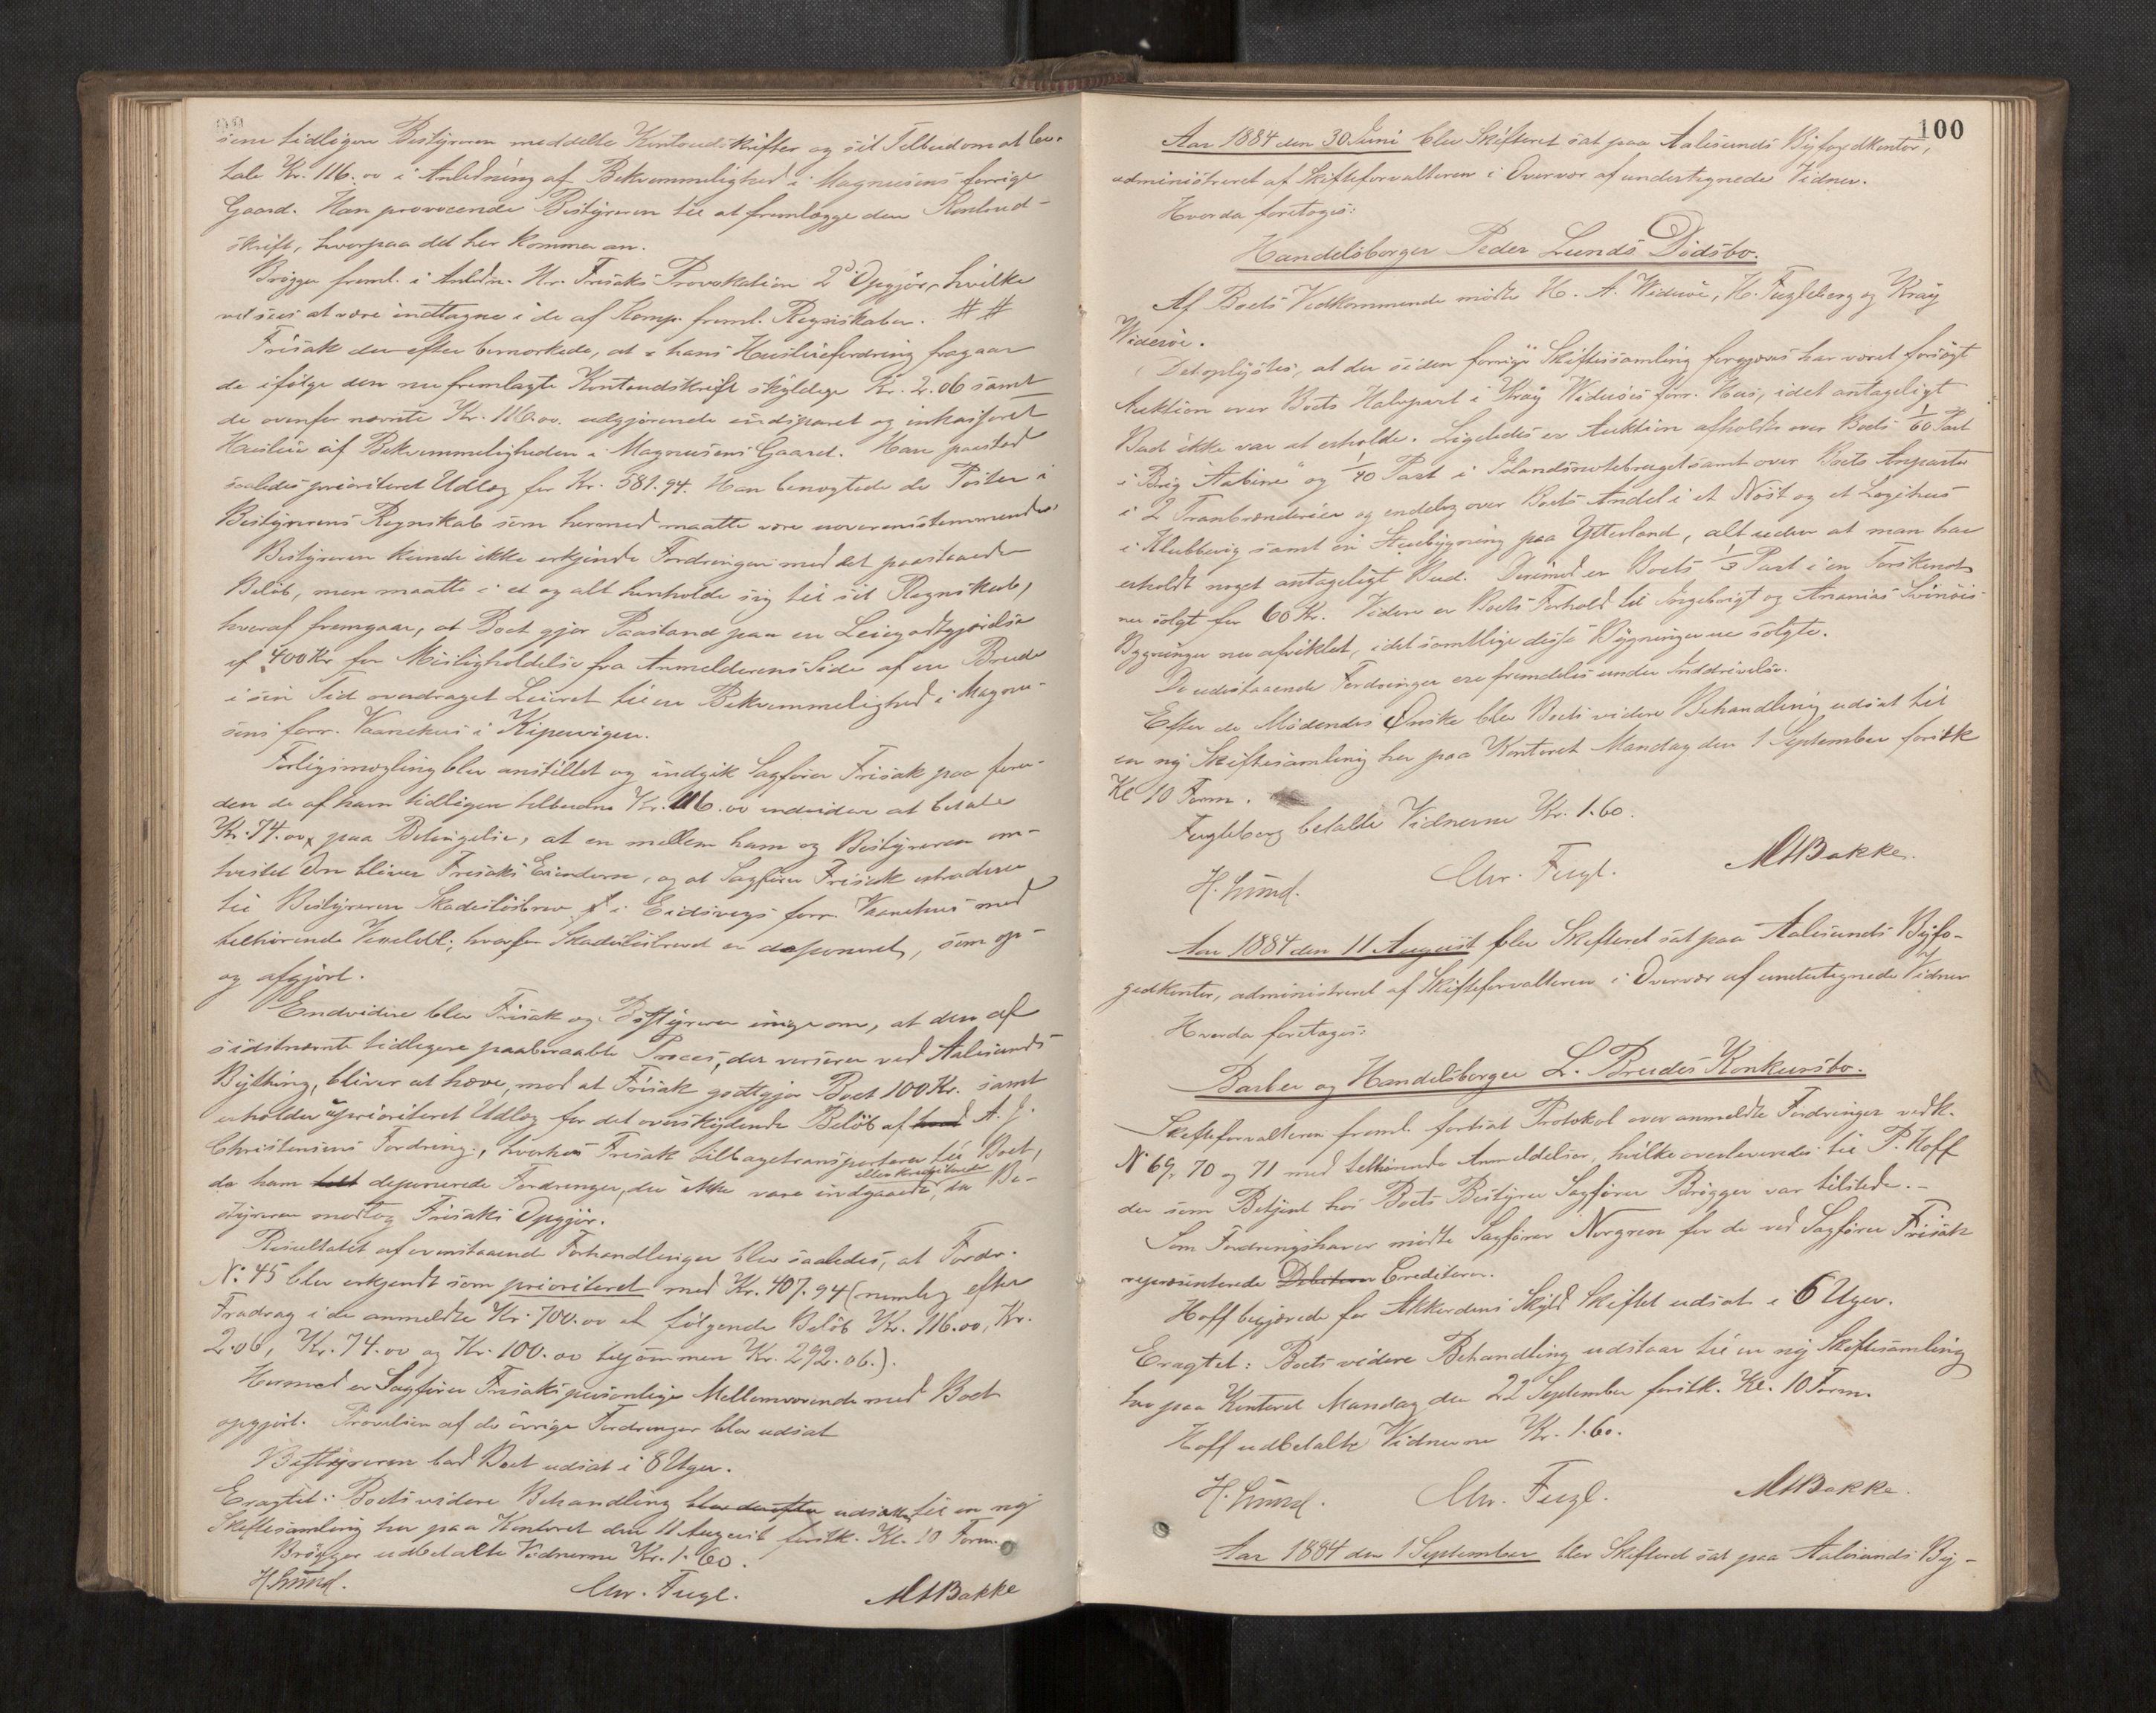 sine tidligere Bestyreren meddelte Kontoudskrifter og sit Tilbud om at be-
tale Kr. 116.00 i Anledning af Bekvemmelighed i Magnusens forrige
Gaard. Han provocerede Bestyreren til at fremlægge den Kontoud-
skrift, hvorpaa det her kommer an.
Brøgger freml. i Anledn. Hr. Frisaks Provokation 2de Opgjør, hvilke
vil sees at være indtagne i de af Komp. freml. Regnskaber. # #
Frisak derefter bemærkede, at i hans Huslejefordring fragaar
de ifølge den nu fremlagte Kontoudskrift skyldige Kr. 2.06 samt
de ovenfor nævnte Kr. 116.00. udgjørende indsparet og inkasseret
Husleie af Bekvemmeligheden i Magnusens Gaard. Han paastod
saaledes prioriteret Udlæg for Kr. 581.94. Han benægtede de Poster i
Bestyrerens Regnskab som hermed maatte være uoverensstemmende.
Bestyreren kunde ikke erkjende Fordringen med det paastaaede
Beløb, men maatte i et og alt henholde sig til sit Regnskab,
hvoraf fremgaar, at Boet gjør Paastand paa en Leiegodtgjørelse
af 400 Kr for Misligholdelse fra Anmelderens Side af en Brude
i sin Tid overdraget Leieret til en Bekvemmelighed i Magnu-
sens forr. Vaanehus i Kipervigen.
Forligsmægling blev anstillet og indgik Sagfører Frisak paa foru-
den de af ham tidligere tilbudne Kr. 116.00 endvidere at betale
Kr. 74.00, paa Betingelse, at en mellem ham og Bestyreren om-
tvistet Ovn bliver Frisaks Eiendom, og at Sagfører Frisak extraderer
til Bestyreren Skadesløsbrev i Eidsvigs forr. Vaanehus med
tilhørende Vexelobl., hvorfor Skadesløsbrevet er deponeret, som op-
og afgjort.
Endvidere blev Frisak og Bestyreren enige om, at den af
sidstnævnte tidligere paaberaabte Proces, der verserer ved Aalesunds
Bything, bliver at hæve, mod at Frisak godtgjør Boet 100 Kr. samt
erholder uprioriteret Udlæg for det overskydende Beløb af A. J.
Christensens Fordring, hvorhos Frisak tilbagetransporterer til Boet,
eller krediterede
de ham deponerede Fordringer, der ikke vare indgaaede, da Be-
styreren modtog Frisaks Opgjør.
Resultatet af ovenstaaende Forhandlinger blev saaledes, at Fordr.
No. 45 blev erkjendt som prioriteret med Kr. 407.94 (nemlig efter
Fradrag i de anmeldte Kr. 700.00 af følgende Beløb Kr. 116.00, Kr.
2.06, Kr. 74.00 og Kr. 100.00 tilsammen Kr. 292.06.).
Hermed er Sagfører Frisaks personlige Mellemværende med Boet
opgjort. Prøvelsen af de øvrige Fordringer blev udsat
Bestyreren bad Boet udsat i 8 Uger.
Eragtet: Boets videre Behandling blev derefter udsættes til en ny
Skiftesamling her paa Kontoret den 11 August førstk. Kl. 10 Form.
Brøgger udbetalte Vidnerne Kr. 1.60.
H. Lund. Chr. Fugl. M Bakke
100
Aar 1884 den 30 Juni blev Skifteret sat paa Aalesunds Byfogedkontor,
administreret af Skifteforvalteren i Overvær af undertegnede Vidner.
Hvorda foretoges:
Handelsborger Peder Lunds Dødsbo.
Af Boets Vedkommende mødte H. A. Widerøe, H. Fugleberg og Krag
Widerøe.
Det oplystes, at der siden forrige Skiftesamling forgjæves har været forsøgt
Auktion over Boets Halvpart i Krag Widerøes forr. Hus, idet antageligt
Bud ikke var at erholde. Ligeledes er Auktion afholdt over Boets 1/60 Part
i Brig "Aabine" og 1/40 Part i Islandsnotebruget samt over Boets Anparter
i 2 Tranbrænderier og endelig over Boets Andel i et Nøst og et Logihus
i Klubbevig samt en Stenbygning paa Ytterland, alt uden at man har
erholdt noget antageligt Bud. Derimod er Boets 1/3 Part i en Torskenot
nu solgt for 60 Kr. Videre er Boets Forhold til Ingebrigt og Ananias Svinøes
Bygninger nu afviklet, idet samtlige disse Bygninger ere solgte.
De udestaaende Fordringer ere fremdeles under Inddrivelse.
Efter de Mødendes Ønske blev Boets videre Behandling udsat til
en ny Skiftesamling her paa Kontoret Mandag den 1 September førstk
Kl 10 Form.
Fugleberg betalte Vidnerne Kr. 1.60.
H. Lund. Chr. Fugl. M Bakke.
Aar 1884 den 11 August blev Skifteret sat paa Aalesunds Byfo-
gedkontor, administreret af Skifteforvalteren i Overvær af undertegnede Vidner
Hvorda foretoges:
Barber og Handelsborger L. Brudes Konkursbo.
Skifteforvalteren freml. fortsat Protokol over anmeldte Fordringer vedk.
No 69, 70 og 71 med tilhørende Anmeldelser, hvilke overleveredes til P. Hoff
der som Betjent hos Boets Bestyrer Sagfører Brøgger var tilstede.-
Som Fordringshaver mødte Sagfører Norgren for de ved Sagfører Frisak
repræsenterede Debitorer Creditorer.
Hoff begjærede for Akkordens Skyld Skiftet udsat i 6 Uger.
Eragtet: Boets videre Behandling udstaar til en ny Skiftesamling
her paa Kontoret Mandag den 22 September førstk. Kl. 10 Form.
Hoff udbetalte Vidnerne Kr. 1.60.
H. Lund. Chr. Fugl. M Bakke.
Aar 1884 den 1 September blev Skifteret sat paa Aalesunds By-